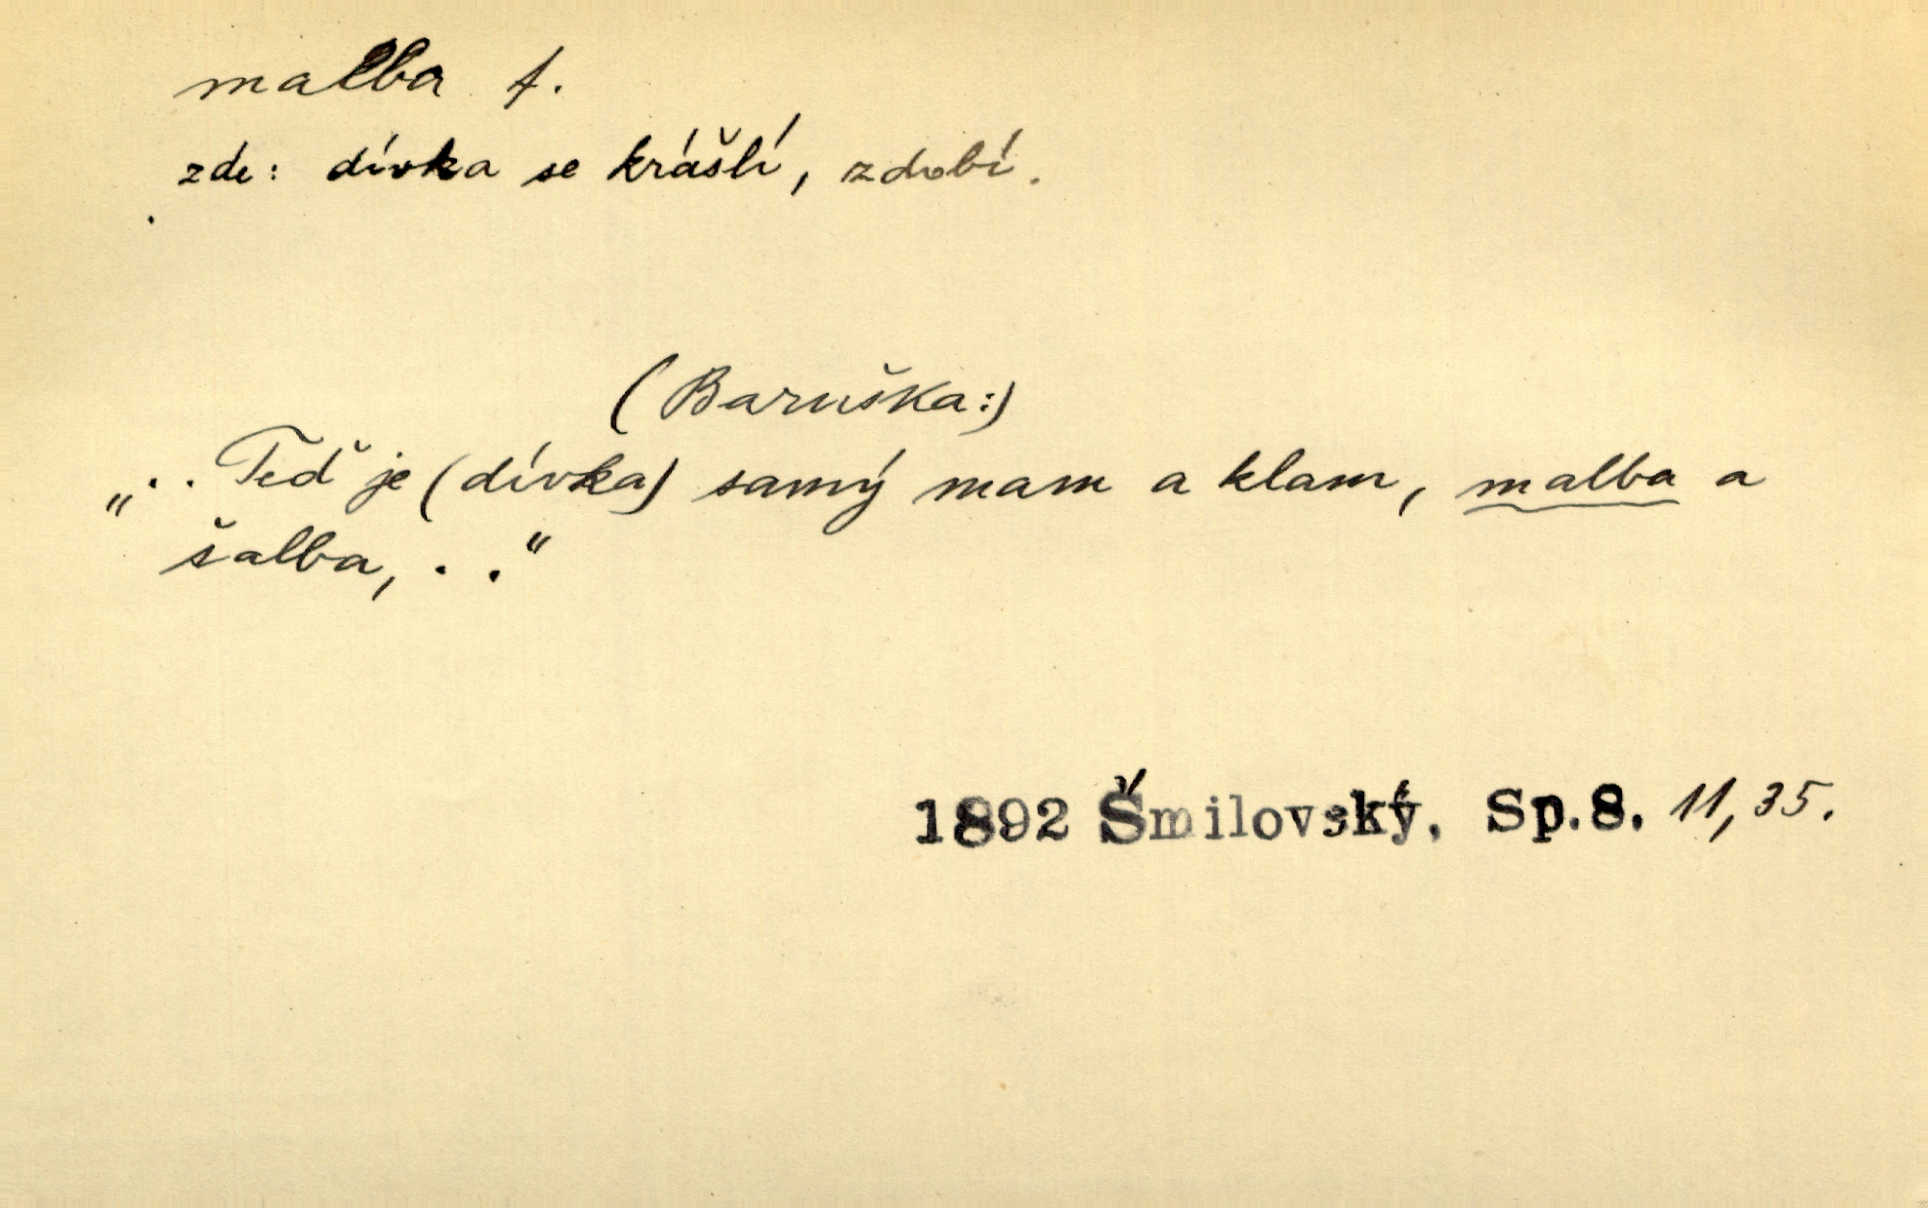 malba f.
zde: dívka se krášlí, zdobí.
(Baruška:)
„. . Teď je (dívka) samý mam a klam, malba a
šalba, . .“
1892 Šmilovský, Sp.8. 11,35.